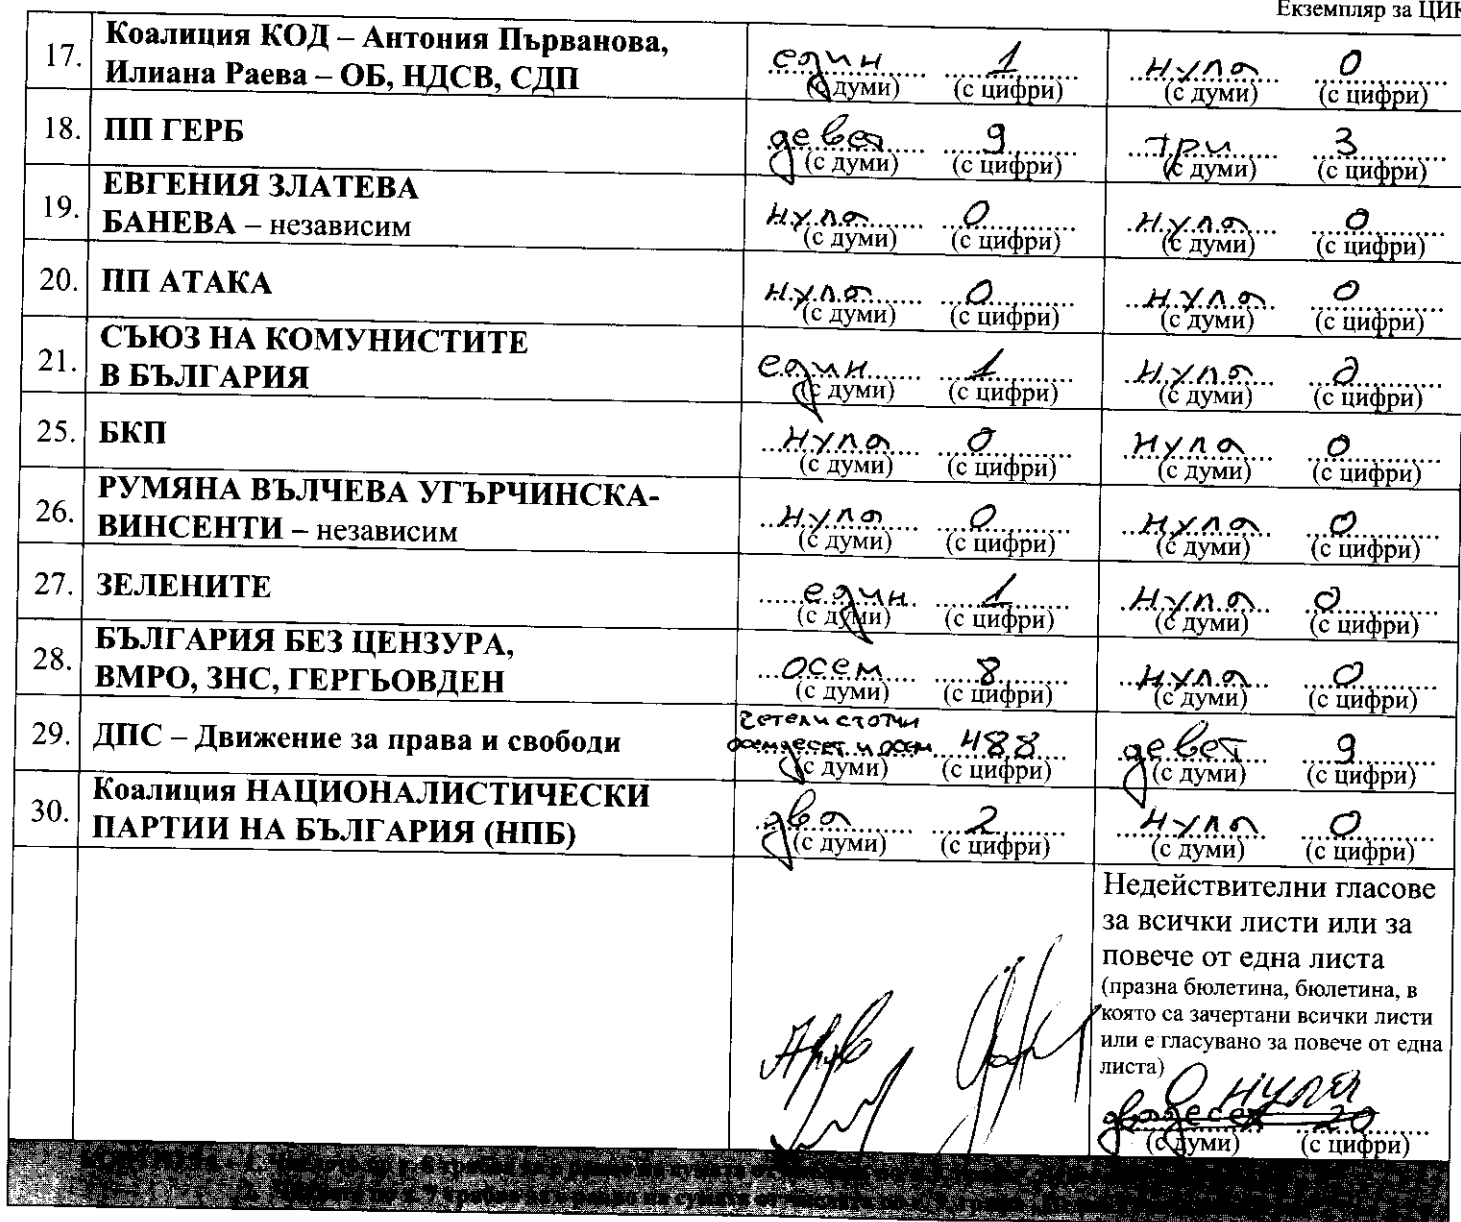 Екземпляр за ЦИК
17. Коалиция КОД – Антония Първанова, Илиана Раева – ОБ, НДСВ, СДП един (с думи) 1 (с цифри) нула (с думи) 0 (с цифри)
18. ПП ГЕРБ девет (с думи) 9 (с цифри) три (с думи) 3 (с цифри)
19. ЕВГЕНИЯ ЗЛАТЕВА БАНЕВА – независим нула (с думи) 0 (с цифри) нула (с думи) 0 (с цифри)
20. ПП АТАКА нула (с думи) 0 (с цифри) нула (с думи) 0 (с цифри)
21. СЪЮЗ НА КОМУНИСТИТЕ В БЪЛГАРИЯ един (с думи) 1 (с цифри) нула (с думи) 0 (с цифри)
25. БКП нула (с думи) 0 (с цифри) нула (с думи) 0 (с цифри)
26. РУМЯНА ВЪЛЧЕВА УГЪРЧИНСКА-ВИНСЕНТИ – независим нула (с думи) 0 (с цифри) нула (с думи) 0 (с цифри)
27. ЗЕЛЕНИТЕ един (с думи) 1 (с цифри) нула (с думи) 0 (с цифри)
28. БЪЛГАРИЯ БЕЗ ЦЕНЗУРА, ВМРО, ЗНС, ГЕРГЬОВДЕН осем (с думи) 8 (с цифри) нула (с думи) 0 (с цифри)
29. ДПС – Движение за права и свободи четеристотин осемдесет и осем (с думи) 488 (с цифри) девет (с думи) 9 (с цифри)
30. Коалиция НАЦИОНАЛИСТИЧЕСКИ ПАРТИИ НА БЪЛГАРИЯ (НПБ) два (с думи) 2 (с цифри) нула (с думи) 0 (с цифри)
Недействителни гласове
за всички листи или за
повече от една листа
(празна бюлетина, бюлетина, в
която са зачертани всички листи
или е гласувано за повече от една
листа)
0 нула
двадесет 20
(с думи) (с цифри)